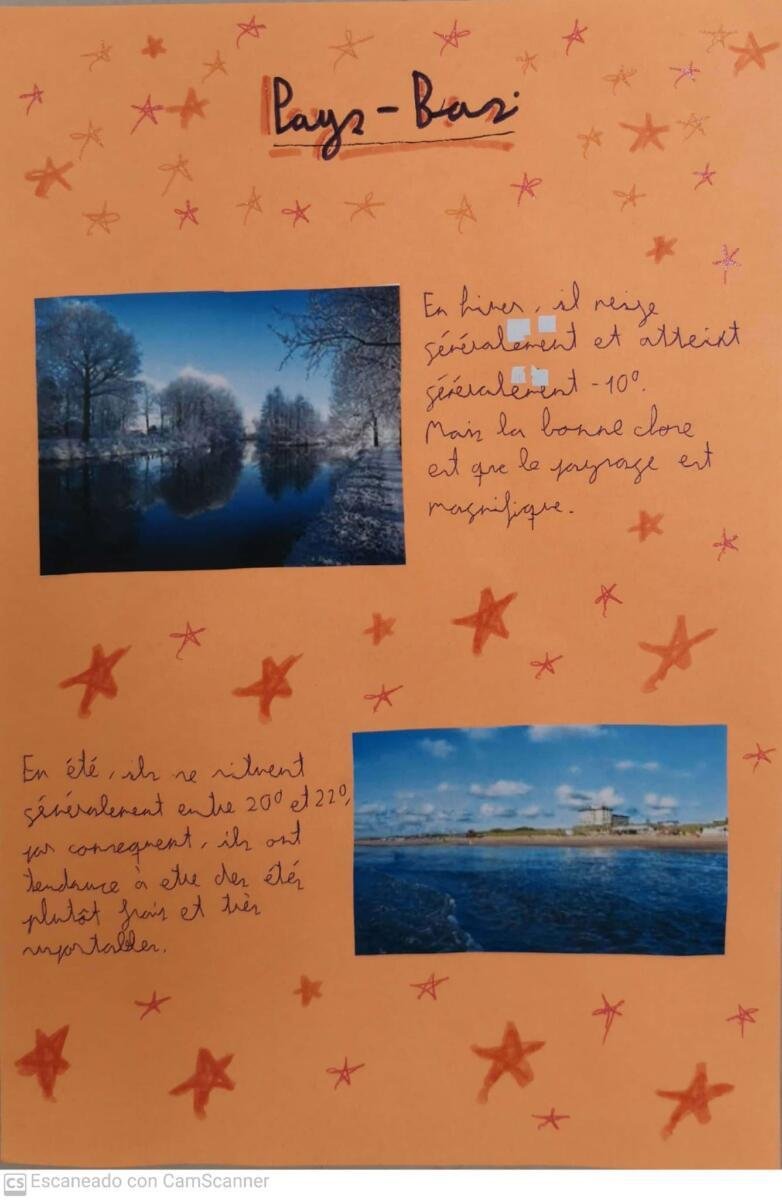 Pays-Bas
En hiver, il neige
généralement et atteint
généralement -10°.
Mais la bonne chose
est que le paysage est
magnifique.
En été, ils se situent
généralement entre 20° et 22°,
par consequent, ils ont
tendance à etre des étés
plutôt frais et très
suportables.
CS Escaneado con CamScanner